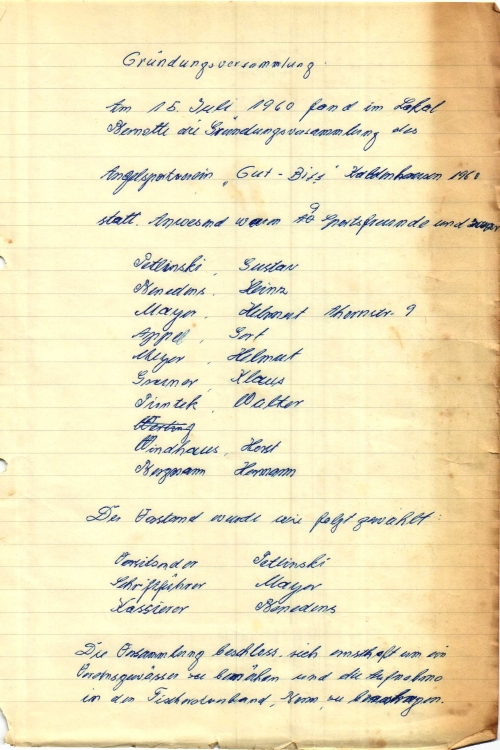 Gründungsversammlung.
Am 15. Juli 1960 fand im Lokal
Bernotte die Gründungsversammlung des
Angelsportverein „Gut-Biss" Kaldenhausen 1960
statt. Anwesend waren 9 Sportsfreunde und zwar
Petlinski, Gustav
Benedens, Heinz
Mayor, Helmut
Appel, Gert
Meyer, Helmut
Grasner, Klaus
Pimtek, Walter
Windhaus, Horst
Bergmann Hermann
Der Vorstand wurde wie folgt gewählt:
Vorsitzender Petlinski
Schriftführer Mayor
Kassierer Benedens
Die Versammlung beschloss, sich ernsthaft um ein
Vereinsgewässer zu bemühen und die Aufnahme
in den Fischereiverband, zu beantragen.